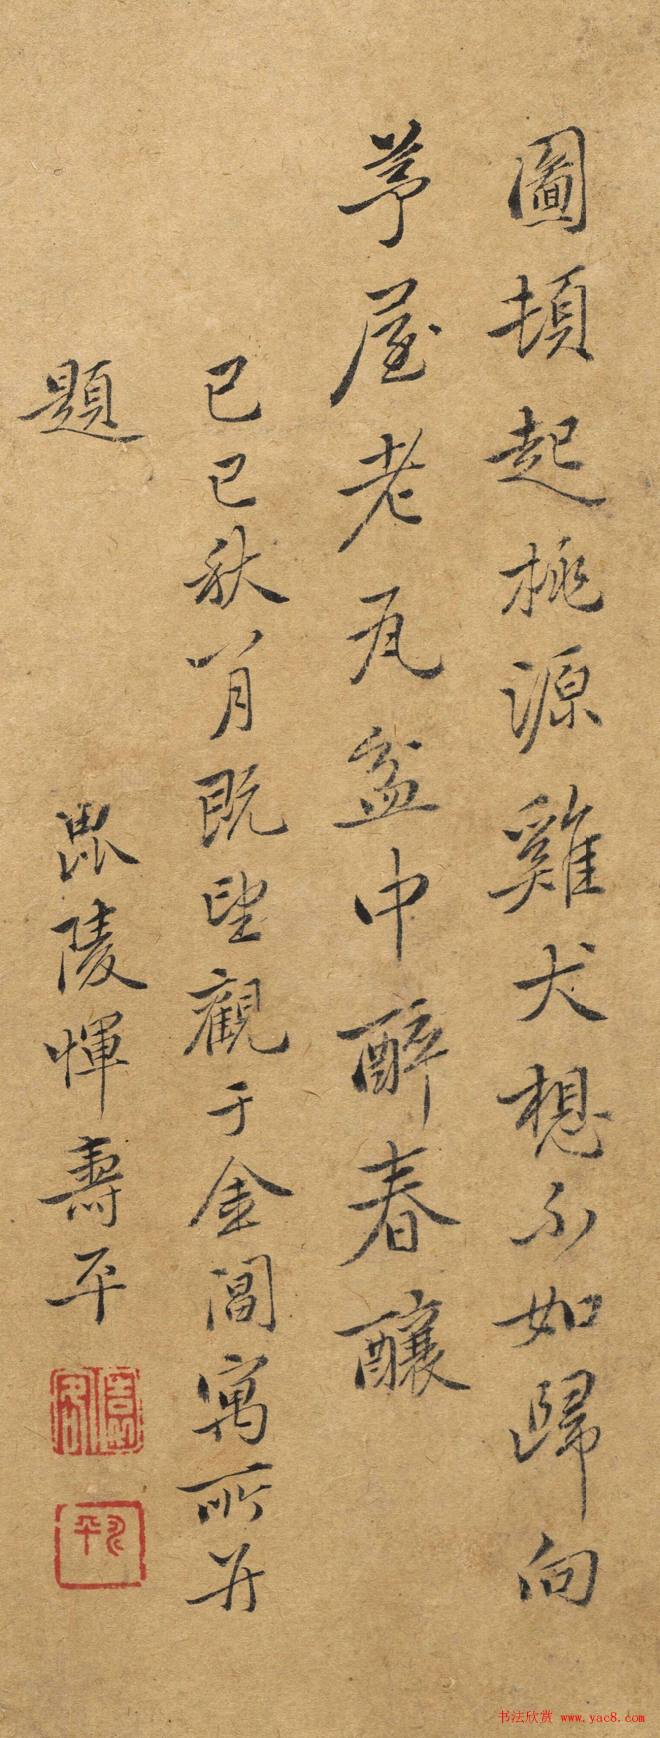 圖頓起桃源雞犬想不如歸向
茅屋老瓦盆中醉春釀
己巳秋八月既望觀于金閶寓所并
題
毘陵惲壽平
書法欣赏 www.yac8.com